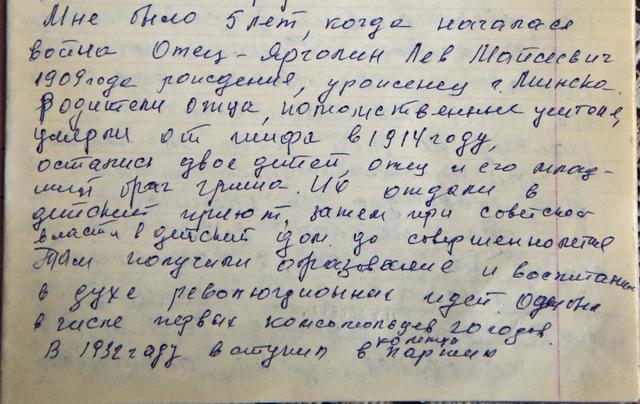 Мне было 5 лет, когда началась
война Отец - Ярголин Лев Мойсеевич
1909 года рождения, уроженец г. Минска.
Родители отца, потомственные учителя,
умерли от тифа в 1914 году,
остались двое детей, отец и его млад-
ший брат Гриша. Их отдали в
детский приют, затем при советской
власти в детский дом. до совершеннолетия
Там получили образование и воспитание
в духе революционных идей. Они
в числе первых комсомольцев 20 годов.
В 1932 году вступил в партию